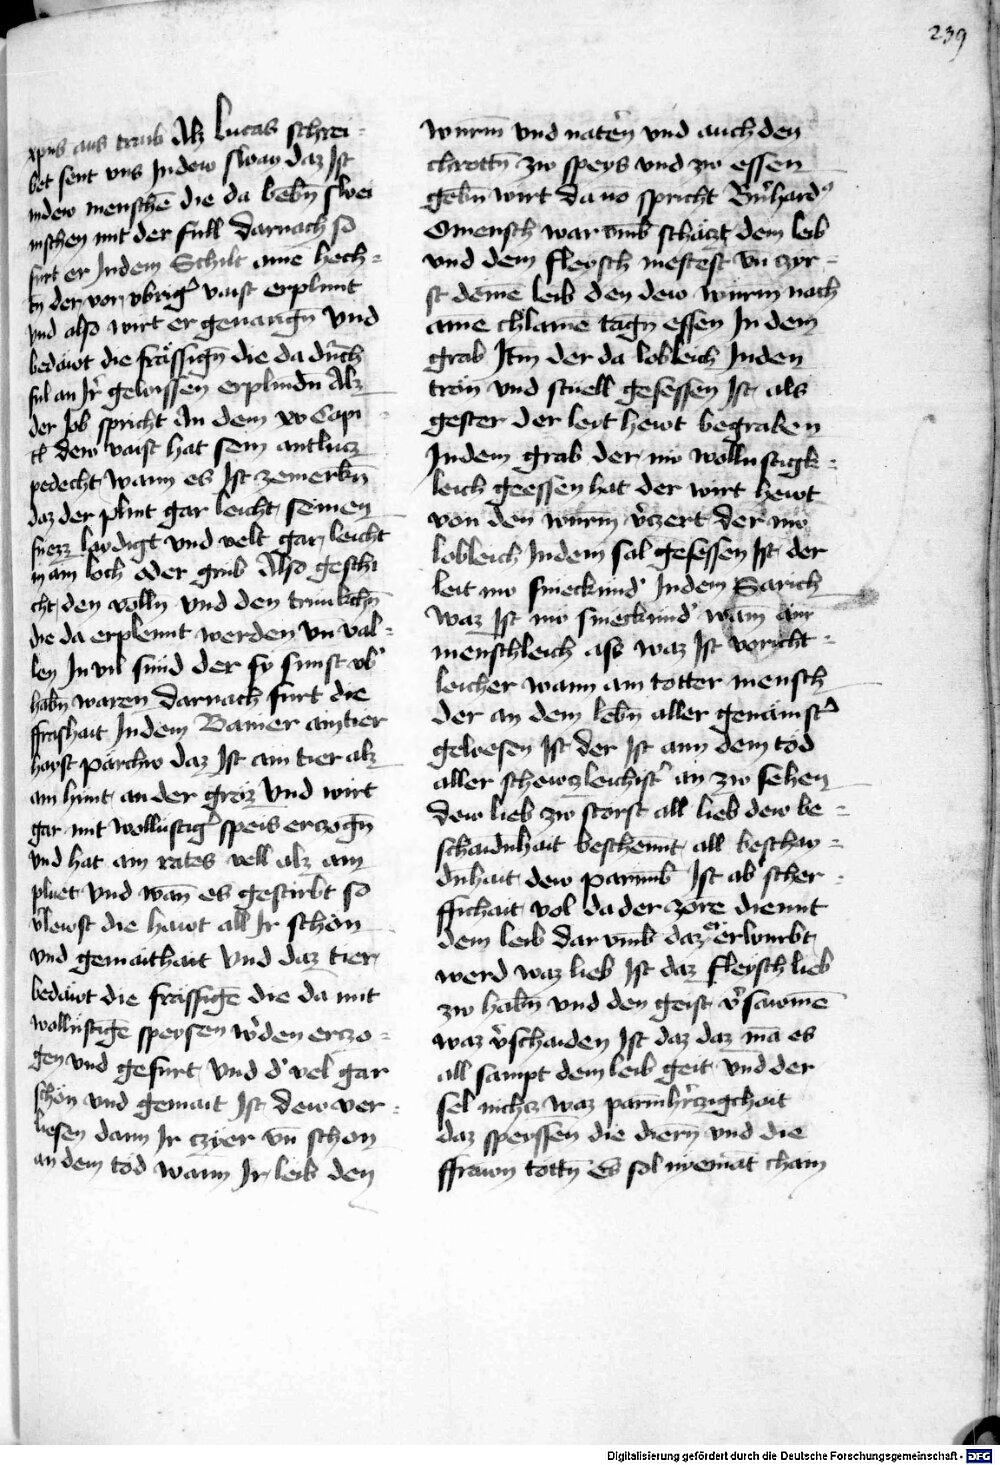 239
xpus aus traib Alz Lucas schrei-
bet sent vns Jndew swan daz Jst
indew menschē die da lebn̄ swei
nischen mit der full darnach so
furt er Jndem Schilt ame hech-
tn̄ der vor vbrig' vaist erplint
vnd also wirt er geuangn̄ vnd
bedäwt die frässign̄ die da durch
ful an Jr gewissen erplindn̄ Alz
der Job spricht An dem xv Capi-
tl dew vaist hat sein antlucz
pedecht wann es Jst zemerkn̄
daz der plint gar leicht seinen
fuezz laidigt vnd velt gar leicht
in am loch oder grub Also geschi
cht den volln vnd den trunkchn̄
die da erplennt werden vn̄ val-
len Jn vil sund der sy sunst vb'
habn̄ waren darnach furt die
ffrashait Jndem Banier ain tier
haist parchw daz Jst am tier alz
am hunt an der gröz vnd wirt
gar mit wollustig' speis erczogn̄
vnd hat ain rates vell alz am
pluet vnd wan̄ es gestirbt so
v'lewst die hawt all Jr schön
vnd gemaithait vnd daz tier
bedäwt die frässigē die da mit
wollustigē speysen w'den erzo-
gen vnd gefurt vnd d' vel gar
schön vnd gemait Jst dew ver-
liesen dann Jr czyer vn̄ schon
an dem tod wann Jr leib den
wurm̄ vnd natern vnd auch den
chrottn̄ zw speys vnd zw essen
gebn̄ wirt da uo spricht Bn̄hard'
O mensch war vmb schäczt dem leib
vnd dem fleysch mestest vn̄ czyr-
st demē leib den dew wurm nach
ame chlamē tagn̄ essen Jn dem
grab Jtm̄ der da lobleich Jnden
tron vnd stuell gesessen Jst als
gester der leit hewt begraben
Jndem grab der nw wollustigk-
leich geessen hat der wirt hewt
von den wurm̄ v'czert der nw
lobleich Jndem sal gesessen Jst der
leit nw smeckund' Jndem Sarich
waz Jst nw smeckund' wann am
menschleich ass waz Jst vericht-
leicher wann am totter mensch
der an dem lebn̄ aller genämst'
gewesen Jst der Jst ann dem tod
aller schewczleichist' an zw sehen
dew lieb zw storst all lieb dew be-
schaidnhait beschennt all beschai-
dnhait dew parmmb Jst ab scher-
ffichait vol da der zore diennt
dem leib dar vmb daz er erwurbt
werd waz lieb Jst daz fleysch lieb
zw habn̄ vnd den geist v'sawmē
waz v'schaiden Jst daz daz mā es
all sampt dem leib geit vnd der
sel nichcz waz parmhrczigchait
daz speyssen die diern̄ vnd die
ffrawn tottn̄ Es sol nyemāt cham
Digitalisierung gefördert durch die Deutsche Forschungsgemeinschaft - DFG